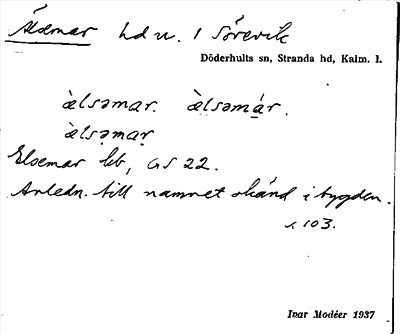 Älsemar hd u. 1 Sörevik
Döderhults sn, Stranda hd, Kalm. l.
àlsəmar. àlsəmár.
àlsəmaṛ
Elsemar kb, GS 22.
Anledn. till namnet okänd i bygden.
s. 103.
Ivar Modéer 1937